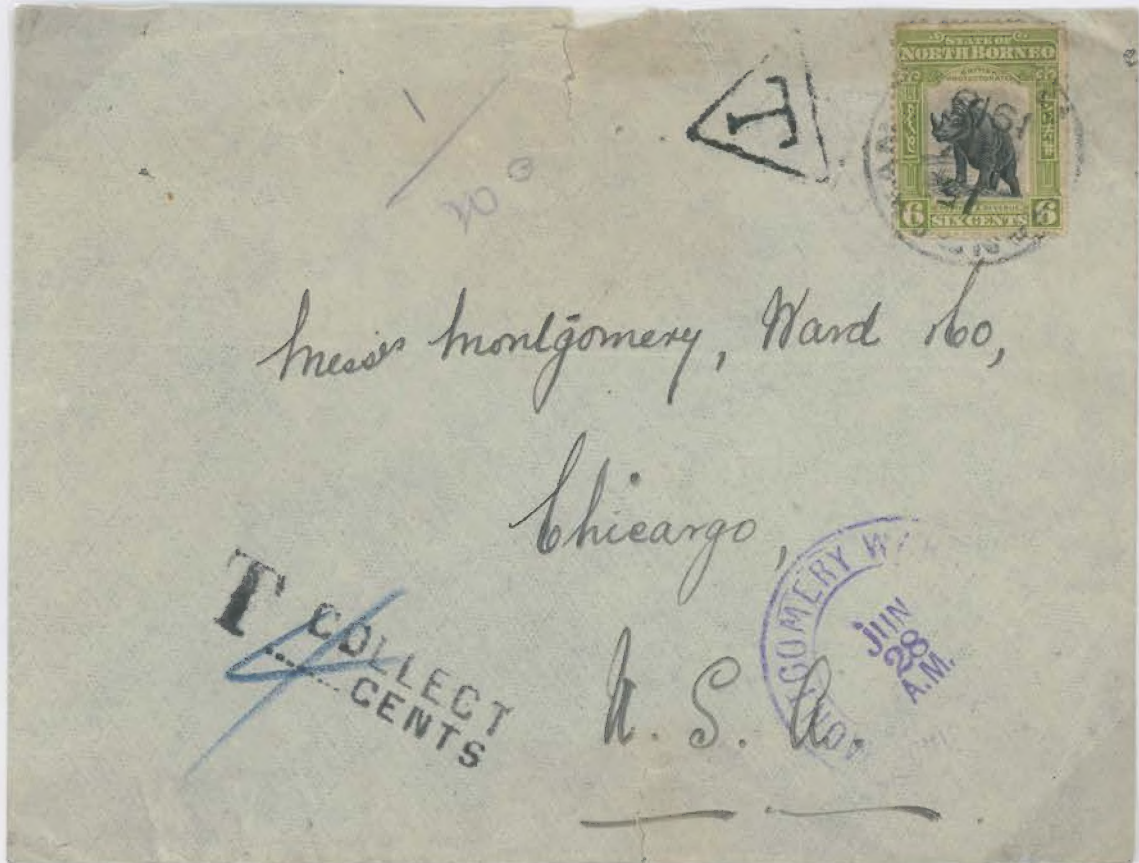 STATE OF
NORTH BORNEO
BRITISH
PROTECTORATE
6 SIX CENTS 6
1910
T
1
20
Messrs Montgomery, Ward & Co,
Chicargo,
U. S. A.
T COLLECT
4 CENTS
GOMERY W
JUN
28
A.M.